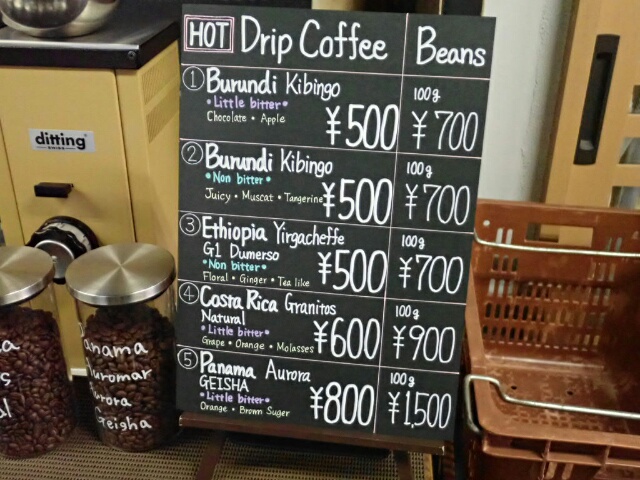 HOT Drip Coffee Beans
① Burundi Kibingo
*Little bitter*
Chocolate • Apple
¥500
100g
¥700
② Burundi Kibingo
*Non bitter*
Juicy • Muscat • Tangerine
¥500
100g
¥700
③ Ethiopia Yirgacheffe
G1 Dumerso
*Non bitter*
Floral • Ginger • Tea like
¥500
100g
¥700
④ Costa Rica Granitos
Natural
*Little bitter*
Grape • Orange • Molasses
¥600
100g
¥900
⑤ Panama Aurora
GEISHA
*Little bitter*
Orange • Brown Sugar
¥800
100g
¥1,500
ditting
Panama
Aurora
Geisha